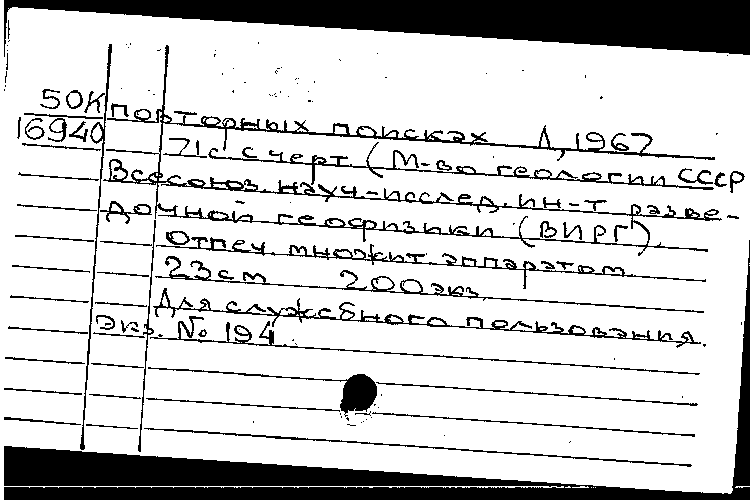 50К повторных поисках Л, 1967
16940
71с с черт. (М-во геологии СССР
Всесоюз. науч.-исслед. ин-т разве-
дочной геофизики (ВИРГ).
Отпеч. множит. аппаратом.
23см 200экз.
Для служебного пользования.
Экз. № 194.